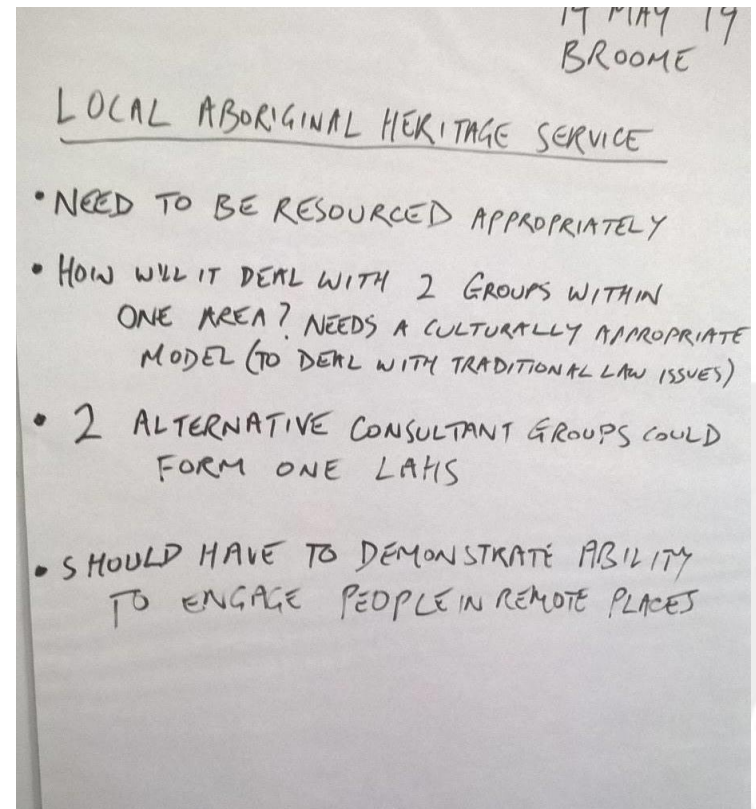 14 MAY 19
BROOME
LOCAL ABORIGINAL HERITAGE SERVICE
• NEED TO BE RESOURCED APPROPRIATELY
• HOW WILL IT DEAL WITH 2 GROUPS WITHIN
ONE AREA? NEEDS A CULTURALLY APPROPRIATE
MODEL (TO DEAL WITH TRADITIONAL LAW ISSUES)
• 2 ALTERNATIVE CONSULTANT GROUPS COULD
FORM ONE LAHS
• SHOULD HAVE TO DEMONSTRATE ABILITY
TO ENGAGE PEOPLE IN REMOTE PLACES